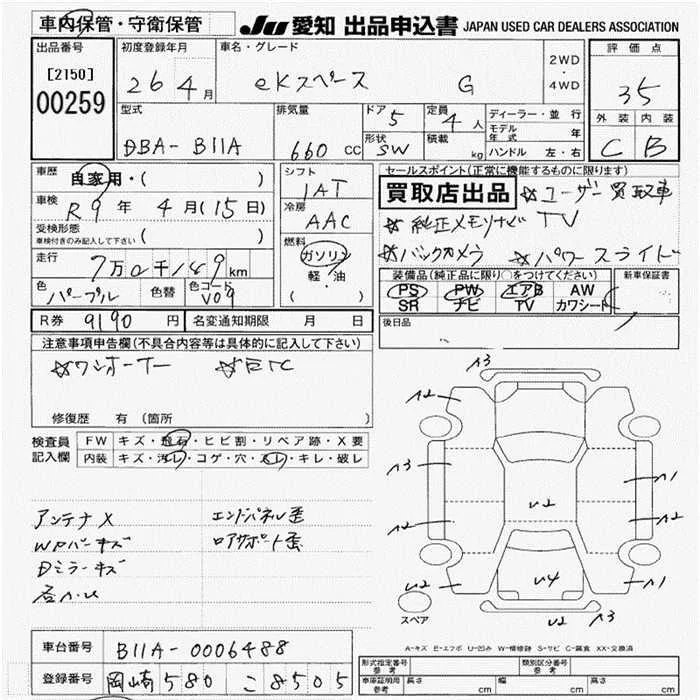 車内保管・守衛保管
JU 愛知 出品申込書 JAPAN USED CAR DEALERS ASSOCIATION
出品番号
[2150]
00259
初度登録年月
26 4月
車名・グレード
eKスペース G
2WD
・
4WD
評価点
35
外装 内装
C B
型式
DBA-B11A
排気量
660 cc
ドア 5
形状 SW
定員 4人
積載 kg
ディーラー・並行
モデル年式 年
ハンドル 左・右
車歴 自家用・( )
車検 R9年 4月(15日)
受検形態
車検付きのみ記入して下さい ( )
走行 7万0千149km
色 パープル 色替 色コード V09
シフト
IAT
冷房
AAC
燃料
ガソリン
軽・油
( )
セールスポイント(正常に機能するものに限ります)
買取店出品 ☆ユーザー買取車
☆純正メモリナビTV
☆バックカメラ ☆パワースライド
装備品(純正品に限り○をつけてください)
PS PW エアB AW
SR ナビ TV カワシート
新車保証書
R券 9190円 名変通知期限 月 日
後日品
注意事項申告欄(不具合内容等は具体的に記入して下さい)
☆ワンオーナー ☆ETC
修復歴 有 (箇所 )
検査員
記入欄
FW キズ・飛石・ヒビ割・リペア跡・X要
内装 キズ・汚レ・コゲ・穴・スレ・キレ・破レ
アンテナX エンドパネル歪
WPバーキズ ロアサポート歪
Dミラーキズ
A3
A2 A2
A3 A1
U2
A2 A2
U2 U4 A1
U2 A3
スペア
A-キズ E-エクボ U-凹み W-補修跡 S-サビ C-腐食 XX-交換済
車台番号 B11A-0006488
登録番号 岡崎 580 こ 8505
形式指定番号
参考
類別区分番号
参考
車庫証明用
参考
長さ cm 幅 cm 高さ cm